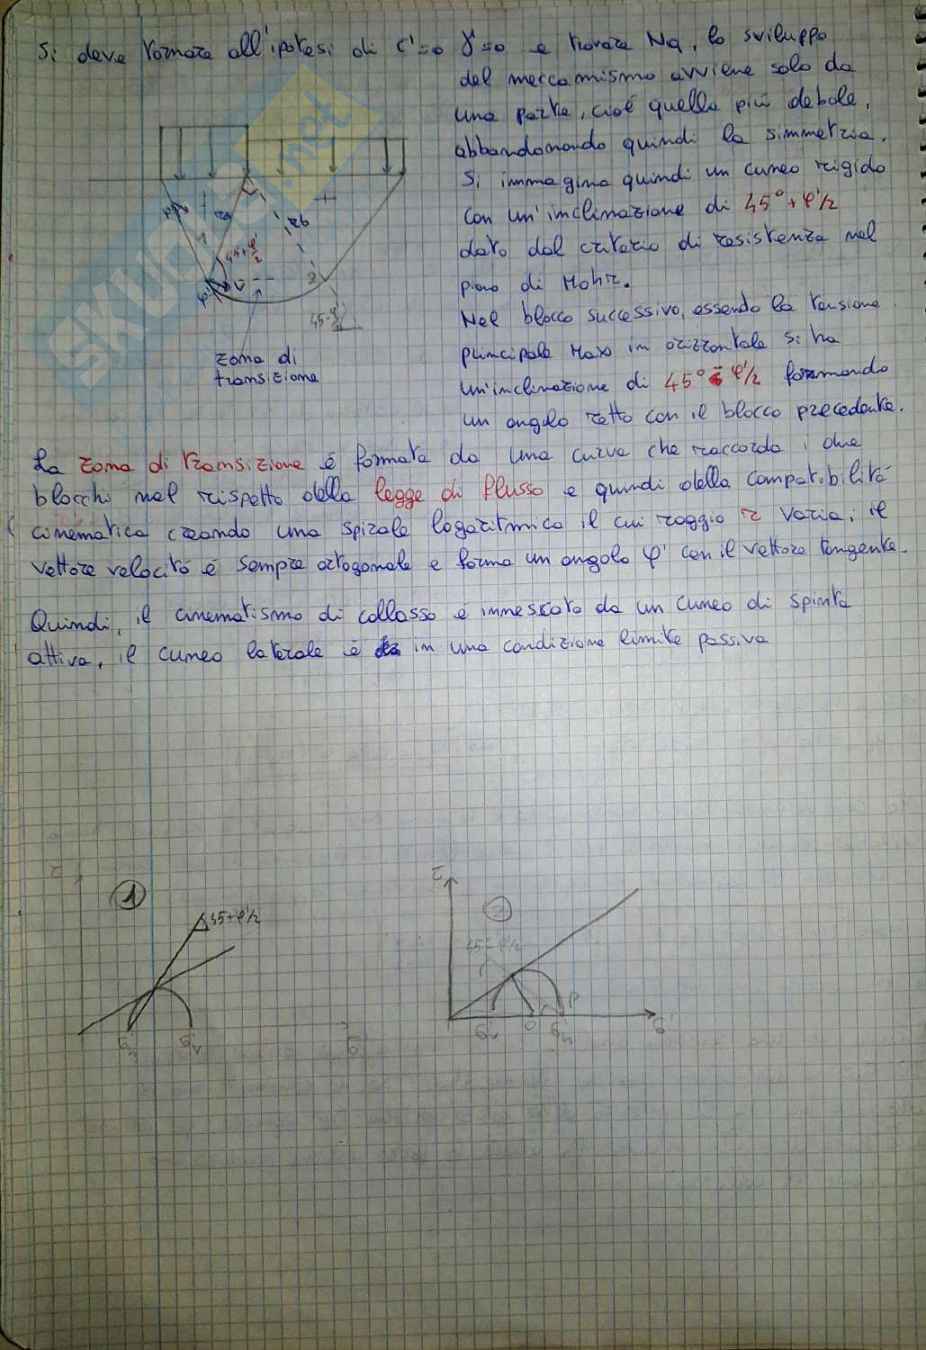 Si deve tornare all'ipotesi di c'=0 γ'=0 e trovare Nq, lo sviluppo
del meccanismo avviene solo da
una parte, cioè quella più debole,
abbandonando quindi la simmetria.
Si immagina quindi un cuneo rigido
con un'inclinazione di 45°+φ'/2
dato dal criterio di resistenza nel
piano di Mohr.
Nel blocco successivo, essendo la tensione
principale max in orizzontale si ha
un'inclinazione di 45°-φ'/2 formando
un angolo retto con il blocco precedente.
45+φ'/2
45-φ'/2
zona di
transizione
La zona di transizione è formata da una curva che raccorda i due
blocchi nel rispetto della legge di flusso e quindi della compatibilità
cinematica creando una spirale logaritmica il cui raggio r varia; il
vettore velocità è sempre ortogonale e forma un angolo φ' con il vettore tangente.
Quindi, il cinematismo di collasso è innescato da un cuneo di spinta
attiva, il cuneo laterale è in una condizione limite passiva
τ
1
45+φ'/2
σh
σv
σ
τ
2
45-φ'/2
P
σv
O
σh
σ'
SKUOLA.net